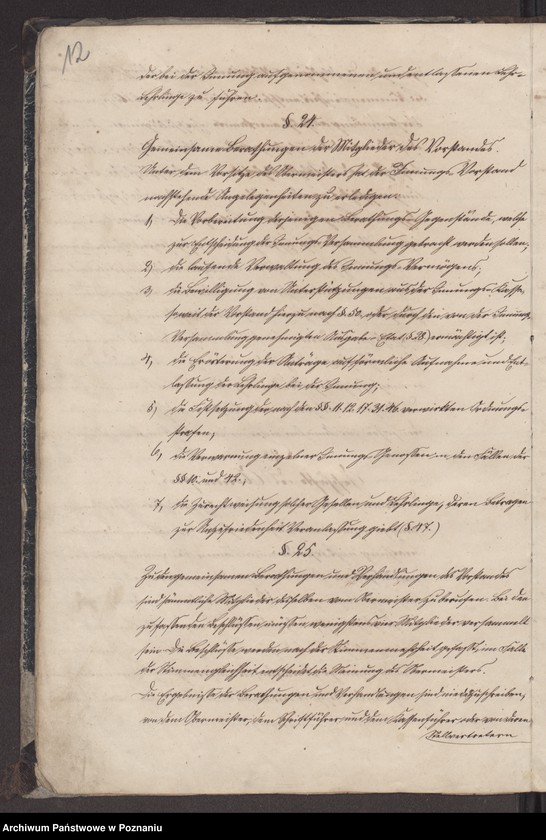 12
der bei der Innung aufgenommenen und entlassenen Lehr-
lehrlinge zu führen.
§. 24.
Gemeinsame Berathungen der Mitglieder des Vorstandes.
Unter dem Vorsitze des Obermeisters hat der Innungs-Vorstand
nachstehende Angelegenheiten zu erledigen:
1, die Vorbereitung derjenigen Berathungs-Gegenstände, welche
zur Entscheidung der Innungs-Versammlung gebracht werden sollen,
2, die laufende Verwaltung des Innungs-Vermögens,
3, die Bewilligung von Unterstützungen aus der Innungs-Kasse
soweit der Vorstand hierzu nach § 50. oder durch den von der Innungs-
Versammlung genehmigten Ausgabe-Etat (§. 28.) ermächtigt ist;
4, die Erörterung der Anträge auf förmliche Aufnahme und Ent-
lassung der Lehrlinge bei der Innung;
5, die Festsetzung der nach den §§. 11. 12. 17. 31. 46. verwirkten Ordnungs-
strafen,
6, die Verwarnung einzelner Innungs-Genossen in den Fällen der
§§ 10. und 42.,
7, die Zurechtweisung solcher Gesellen und Lehrlinge, deren Betragen
zur Unzufriedenheit Veranlassung giebt (§ 47.)
§. 25.
Zu den gemeinsamen Berathungen und Verhandlungen des Vorstandes
sind sämmtliche Mitglieder desselben vom Obermeister zu berufen. Bei den
zu fassenden Beschlüssen müssen wenigstens vier Mitglieder versammelt
sein. Die Beschlüsse werden nach der Stimmenmehrheit gefasst, im Falle
der Stimmengleichheit entscheidet die Meinung des Obermeisters.
Die Ergebnisse der Berathungen und Verhandlungen sind niederzuschreiben,
von dem Obermeister, dem Schriftführer und dem Kassenführer oder von deren
Stellvertretern
Archiwum Państwowe w Poznaniu